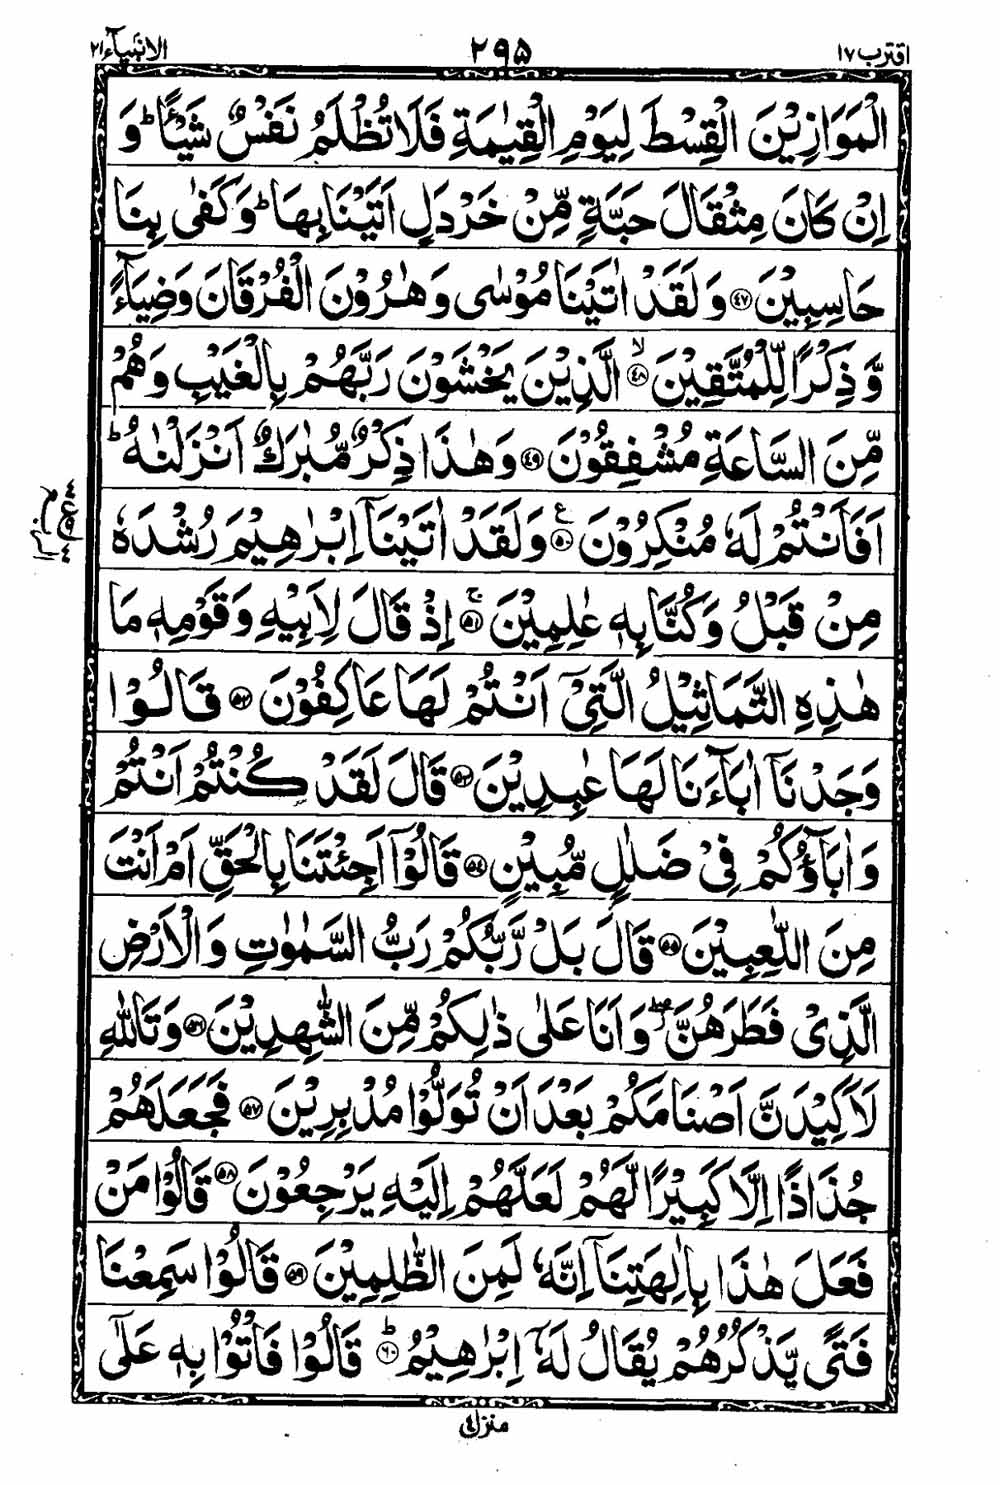 اقترب ١٧
٢٩٥
الانبیآء ٢١
الْمَوَازِیْنَ الْقِسْطَ لِیَوْمِ الْقِیٰمَةِ فَلَا تُظْلَمُ نَفْسٌ شَیْـًٔاؕ وَ
اِنْ كَانَ مِثْقَالَ حَبَّةٍ مِّنْ خَرْدَلٍ اَتَیْنَا بِهَاؕ وَ كَفٰی بِنَا
حَاسِبِیْنَ ﴿٤٧﴾ وَ لَقَدْ اٰتَیْنَا مُوْسٰی وَ هٰرُوْنَ الْفُرْقَانَ وَ ضِیَآءً
وَّ ذِكْرًا لِّلْمُتَّقِیْنَ ۙ﴿٤٨﴾ الَّذِیْنَ یَخْشَوْنَ رَبَّهُمْ بِالْغَیْبِ وَ هُمْ
مِّنَ السَّاعَةِ مُشْفِقُوْنَ ﴿٤٩﴾ وَ هٰذَا ذِكْرٌ مُّبٰرَكٌ اَنْزَلْنٰهُؕ
اَفَاَنْتُمْ لَهٗ مُنْكِرُوْنَ ﴿٥٠﴾ ع وَ لَقَدْ اٰتَیْنَاۤ اِبْرٰهِیْمَ رُشْدَهٗ
مِنْ قَبْلُ وَ كُنَّا بِهٖ عٰلِمِیْنَ ۚ﴿٥١﴾ اِذْ قَالَ لِاَبِیْهِ وَ قَوْمِهٖ مَا
هٰذِهِ التَّمَاثِیْلُ الَّتِیْۤ اَنْتُمْ لَهَا عَاكِفُوْنَ ﴿٥٢﴾ قَالُوْا
وَجَدْنَاۤ اٰبَآءَنَا لَهَا عٰبِدِیْنَ ﴿٥٣﴾ قَالَ لَقَدْ كُنْتُمْ اَنْتُمْ
وَ اٰبَآؤُكُمْ فِیْ ضَلٰلٍ مُّبِیْنٍ ﴿٥٤﴾ قَالُوْۤا اَجِئْتَنَا بِالْحَقِّ اَمْ اَنْتَ
مِنَ اللّٰعِبِیْنَ ﴿٥٥﴾ قَالَ بَلْ رَّبُّكُمْ رَبُّ السَّمٰوٰتِ وَ الْاَرْضِ
الَّذِیْ فَطَرَهُنَّ ۖ وَ اَنَا عَلٰی ذٰلِكُمْ مِّنَ الشّٰهِدِیْنَ ﴿٥٦﴾ وَ تَاللّٰهِ
لَاَكِیْدَنَّ اَصْنَامَكُمْ بَعْدَ اَنْ تُوَلُّوْا مُدْبِرِیْنَ ﴿٥٧﴾ فَجَعَلَهُمْ
جُذٰذًا اِلَّا كَبِیْرًا لَّهُمْ لَعَلَّهُمْ اِلَیْهِ یَرْجِعُوْنَ ﴿٥٨﴾ قَالُوْا مَنْ
فَعَلَ هٰذَا بِاٰلِهَتِنَاۤ اِنَّهٗ لَمِنَ الظّٰلِمِیْنَ ﴿٥٩﴾ قَالُوْا سَمِعْنَا
فَتًی یَّذْكُرُهُمْ یُقَالُ لَهٗۤ اِبْرٰهِیْمُ ؕ﴿٦٠﴾ قَالُوْا فَاْتُوْا بِهٖ عَلٰۤی
منزل ٤